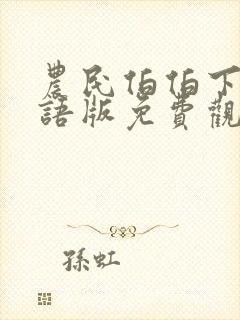 農民伯伯下
語版免費觀
孫虹